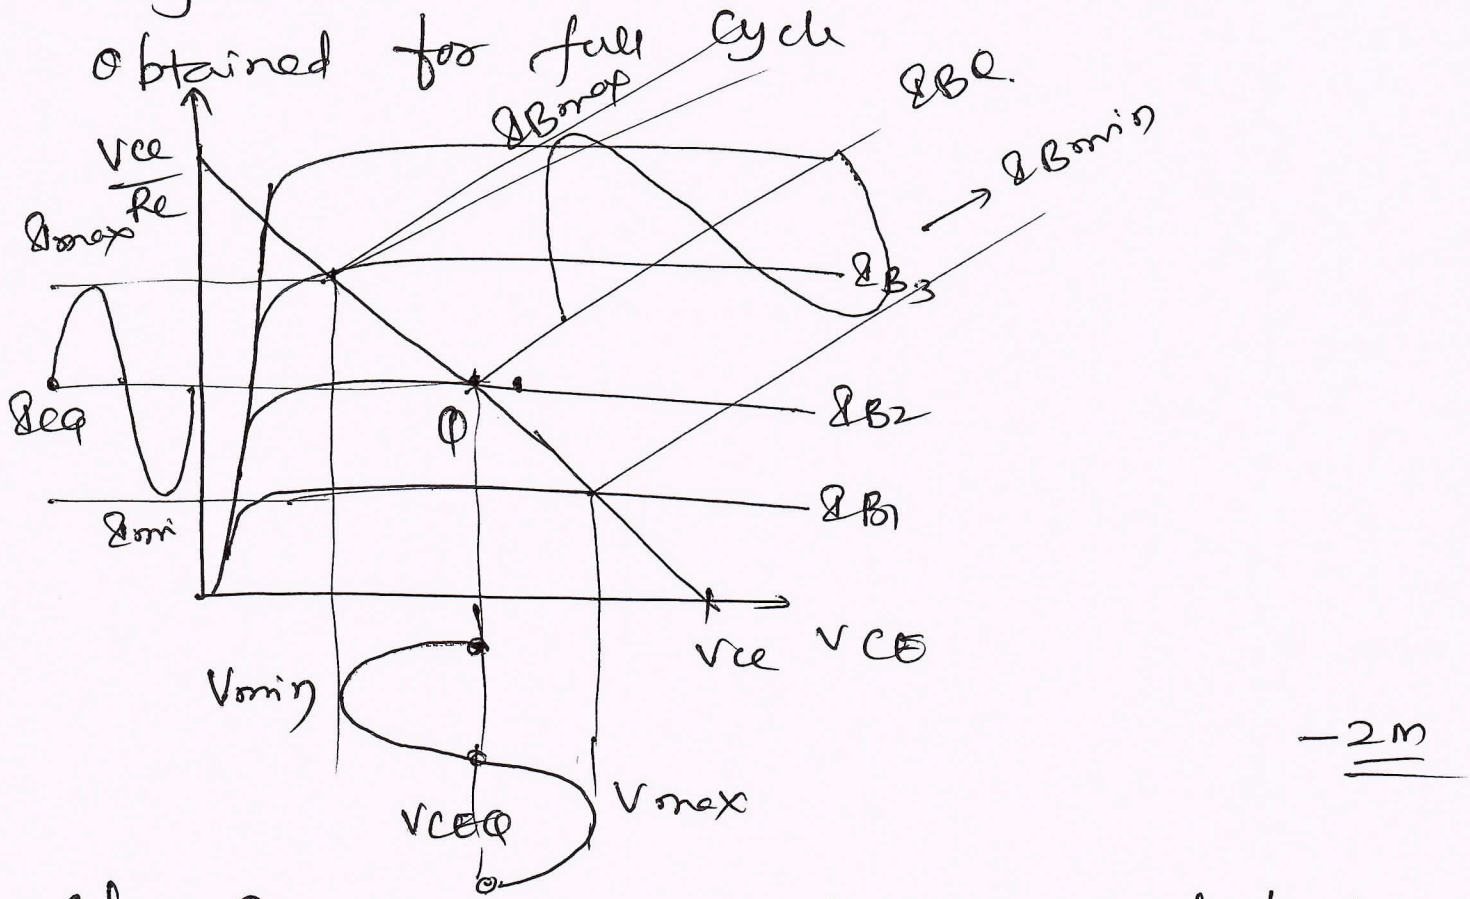 obtained for full cycle
IBmax
IBQ
IBmin
Vcc
Rc
Imax
IB3
ICQ
Q
IB2
IB1
Imi
Vcc VCE
Vmin
VCEQ
Vmax
-2m